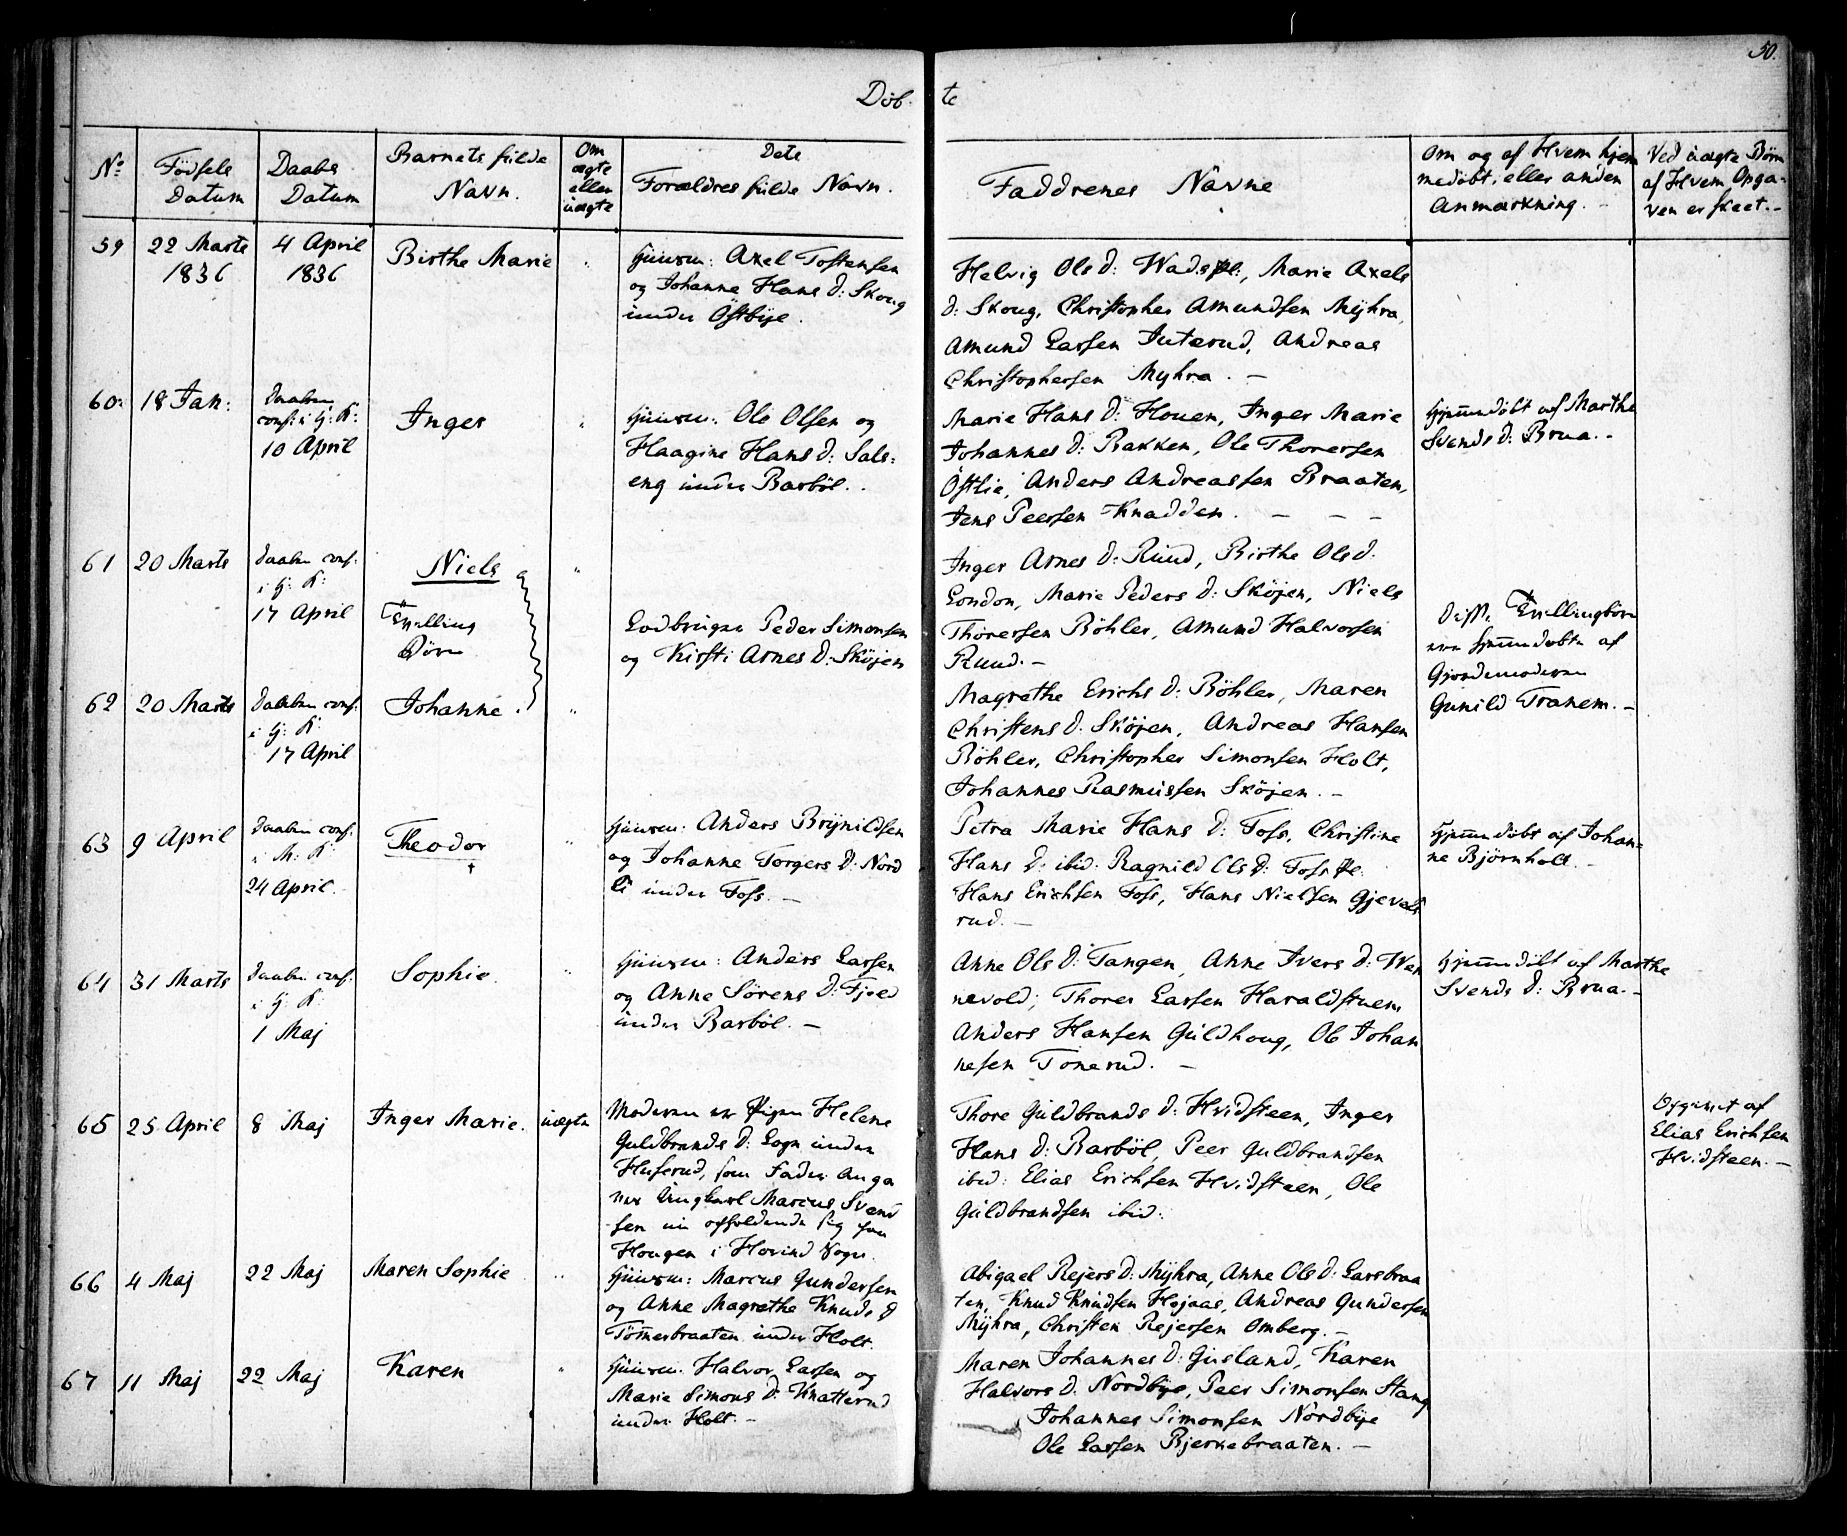 50.
Döb- te
No
Födsels Datum
Daabs Datum
Barnets fulde Navn.
Om ægte eller uægte
Dets Forældres fulde Navn.
Faddrenes Navne
Om og af Hvem hjem
medöbt, eller anden
Anmærkning.
Ved uægte Börn
af Hvem Opga-
ven er skeet.-
59
22 Marts
1836
4 April
1836
Birthe Marie
"
Huusm: Axel Tostensen
og Johanne Hans D: Skoug
under Östbye.
Helvig Ols D: Wads, Marie Axels
D: Skoug, Christopher Amundsen Myhra,
Amund Larsen Juterud, Andreas
Christophersen Myhra. -
60.
18 Jan:
Daaben
conf: i H: K:
10 April
Inger
"
Huusm: Ole Olsen og
Haagine Hans D: Sals:
eng under Barböl.
Marie Hans D: Houen, Inger Marie
Johannes D: Bakken, Ole Thoresen
Östlie, Anders Andreassen Braaten,
Jens Peersen Knadden. - - -
Hjemmedöbt af Marthe
Svends D: Brua.-
61
20 Marts
Daaben conf.
i H: K:
17 April
Niels
Tvilling
Börn
"
Lodbruger Peder Simonsen
og Kirsti Arnes D: Sköjen
Inger Arnes D: Ruud, Birthe Ols D:
London, Marie Peders D: Sköjen, Niels
Thoresen Böhler, Amund Halvorsen
Ruud.-
Disse Tvillingbörn
ere hjemmedöbte af
Gjordemoderen
Gunild Tranem.-
62
20 Marts
Daaben conf.
i H: K:
17 April
Johanne.
"
Magrethe Erichs D: Böhler, Maren
Christens D: Sköjen, Andreas Hansen
Böhler, Christopher Simonsen Holt,
Johannes Rasmussen Sköjen. -
63
9 April
Daaben conf:
i N: K:
24 April
Theodor
†
"
Huusm: Anders Brynildsen
og Johanne Torgers D: Nord
li under Foss. -
Petra Marie Hans D: Foss, Christine
Hans D: ibid: Ragnild Ols D: Foss
Hans Erichsen Foss, Hans Nielsen Gjevels
rud.-
Hjemmedöbt af Johan-
ne Björnholt.
64
31 Marts
Daaben conf.
i H: K:
1 Maj
Sophie.
"
Huusm: Anders Larsen
og Anne Sörens D: Fjeld
under Barböl. -
Anne Ols D: Tangen, Anne Ivers D: Wen
nevold, Thorer Larsen Haraldstuen,
Anders Hansen Guldhoug, Ole Johan
nesen Tonerud. -
Hjemmedöbt af Marthe
Svends D: Brua.-
65
25 April
8 Maj
Inger Marie.
uægte
Moderen er Pigen Helene
Guldbrands D: Sogn under
Huserud, som Fader anga
ves Ungkarl Marcus Svend
sen nu opholdende sig paa
Hougen i Hovind Sogn.
Thore Guldbrands D: Hvidsteen, Inger
Hans D: Barböl, Peer Guldbrandsen
ibid: Elias Erichsen Hvidsteen, Ole
Guldbrandsen ibid:
Opgivet af
Elias Erichsen
Hvidsteen. -
66
4 Maj
22 Maj
Maren Sophie
"
Huusm: Marcus Gundersen
og Anne Magrethe Knuds D
Tömmerbraaten under Holt.
Abigael Rejers D: Myhra, Anne Ols D: Larsbraa
ten, Knud Knudsen Höjaas, Andreas Gundersen
Myhra, Christen Rejersen Omberg.-
67
11 Maj
22 Maj
Karen
"
Huusm. Halvor Larsen og
Marie Simons D: Knatterud
under Holt.-
Maren Johannes D: Gusland, Karen
Halvors D. Nordbye, Peer Simonsen Stang
Johannes Simonsen Nordbye
Ole Larsen Bjerkebraaten. -